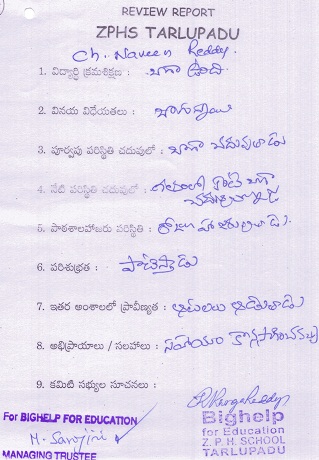 REVIEW REPORT
ZPHS TARLUPADU
Ch. Naveen Reddy.
1. విద్యార్థి క్రమశిక్షణ : బాగా ఉంది.
2. వినయ విధేయతలు : బాగున్నాయి
3. పూర్వపు పరిస్థితి చదువులో : బాగా చదువుతాడు
4. నేటి పరిస్థితి చదువులో : గతంలో కంటే బాగా
చదువుతున్నాడు
5. పాఠశాలహాజరు పరిస్థితి : రోజూ హాజరవుతాడు.
6. పరిశుభ్రత : పాటిస్తాడు
7. ఇతర అంశాలలో ప్రావీణ్యత : ఆటలు ఆడుతాడు
8. అభిప్రాయాలు / సలహాలు : సహాయం కొనసాగించవచ్చు
9. కమిటి సభ్యుల సూచనలు :
For BIGHELP FOR EDUCATION
M. Sarojini
MANAGING TRUSTEE
Bighelp
for Education
Z. P. H. SCHOOL
TARLUPADU